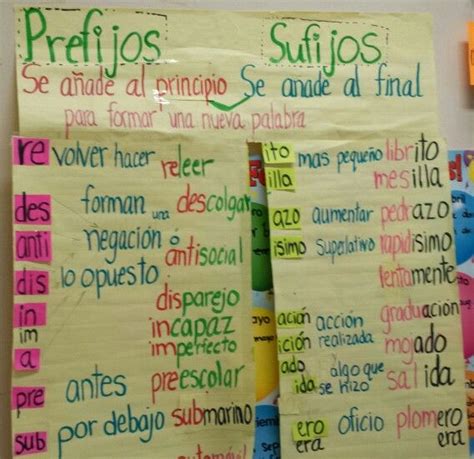 Prefijos
Sufijos
Se añade al principio Se anade al final
para formar una nueva palabra
re volver hacer releer
des forman una descolgar
anti negación o antisocial
dis lo opuesto disparejo
in incapaz
im imperfecto
a
pre antes preescolar
sub por debajo submarino
automóvil
ito mas pequeño librito
illa mesilla
azo aumentar pedrazo
isimo Superlativo rapidísimo
lentamente
ación acción graduación
ición realizada
ado algo que mojado
ida se hizo salida
ero oficio plomero
era era